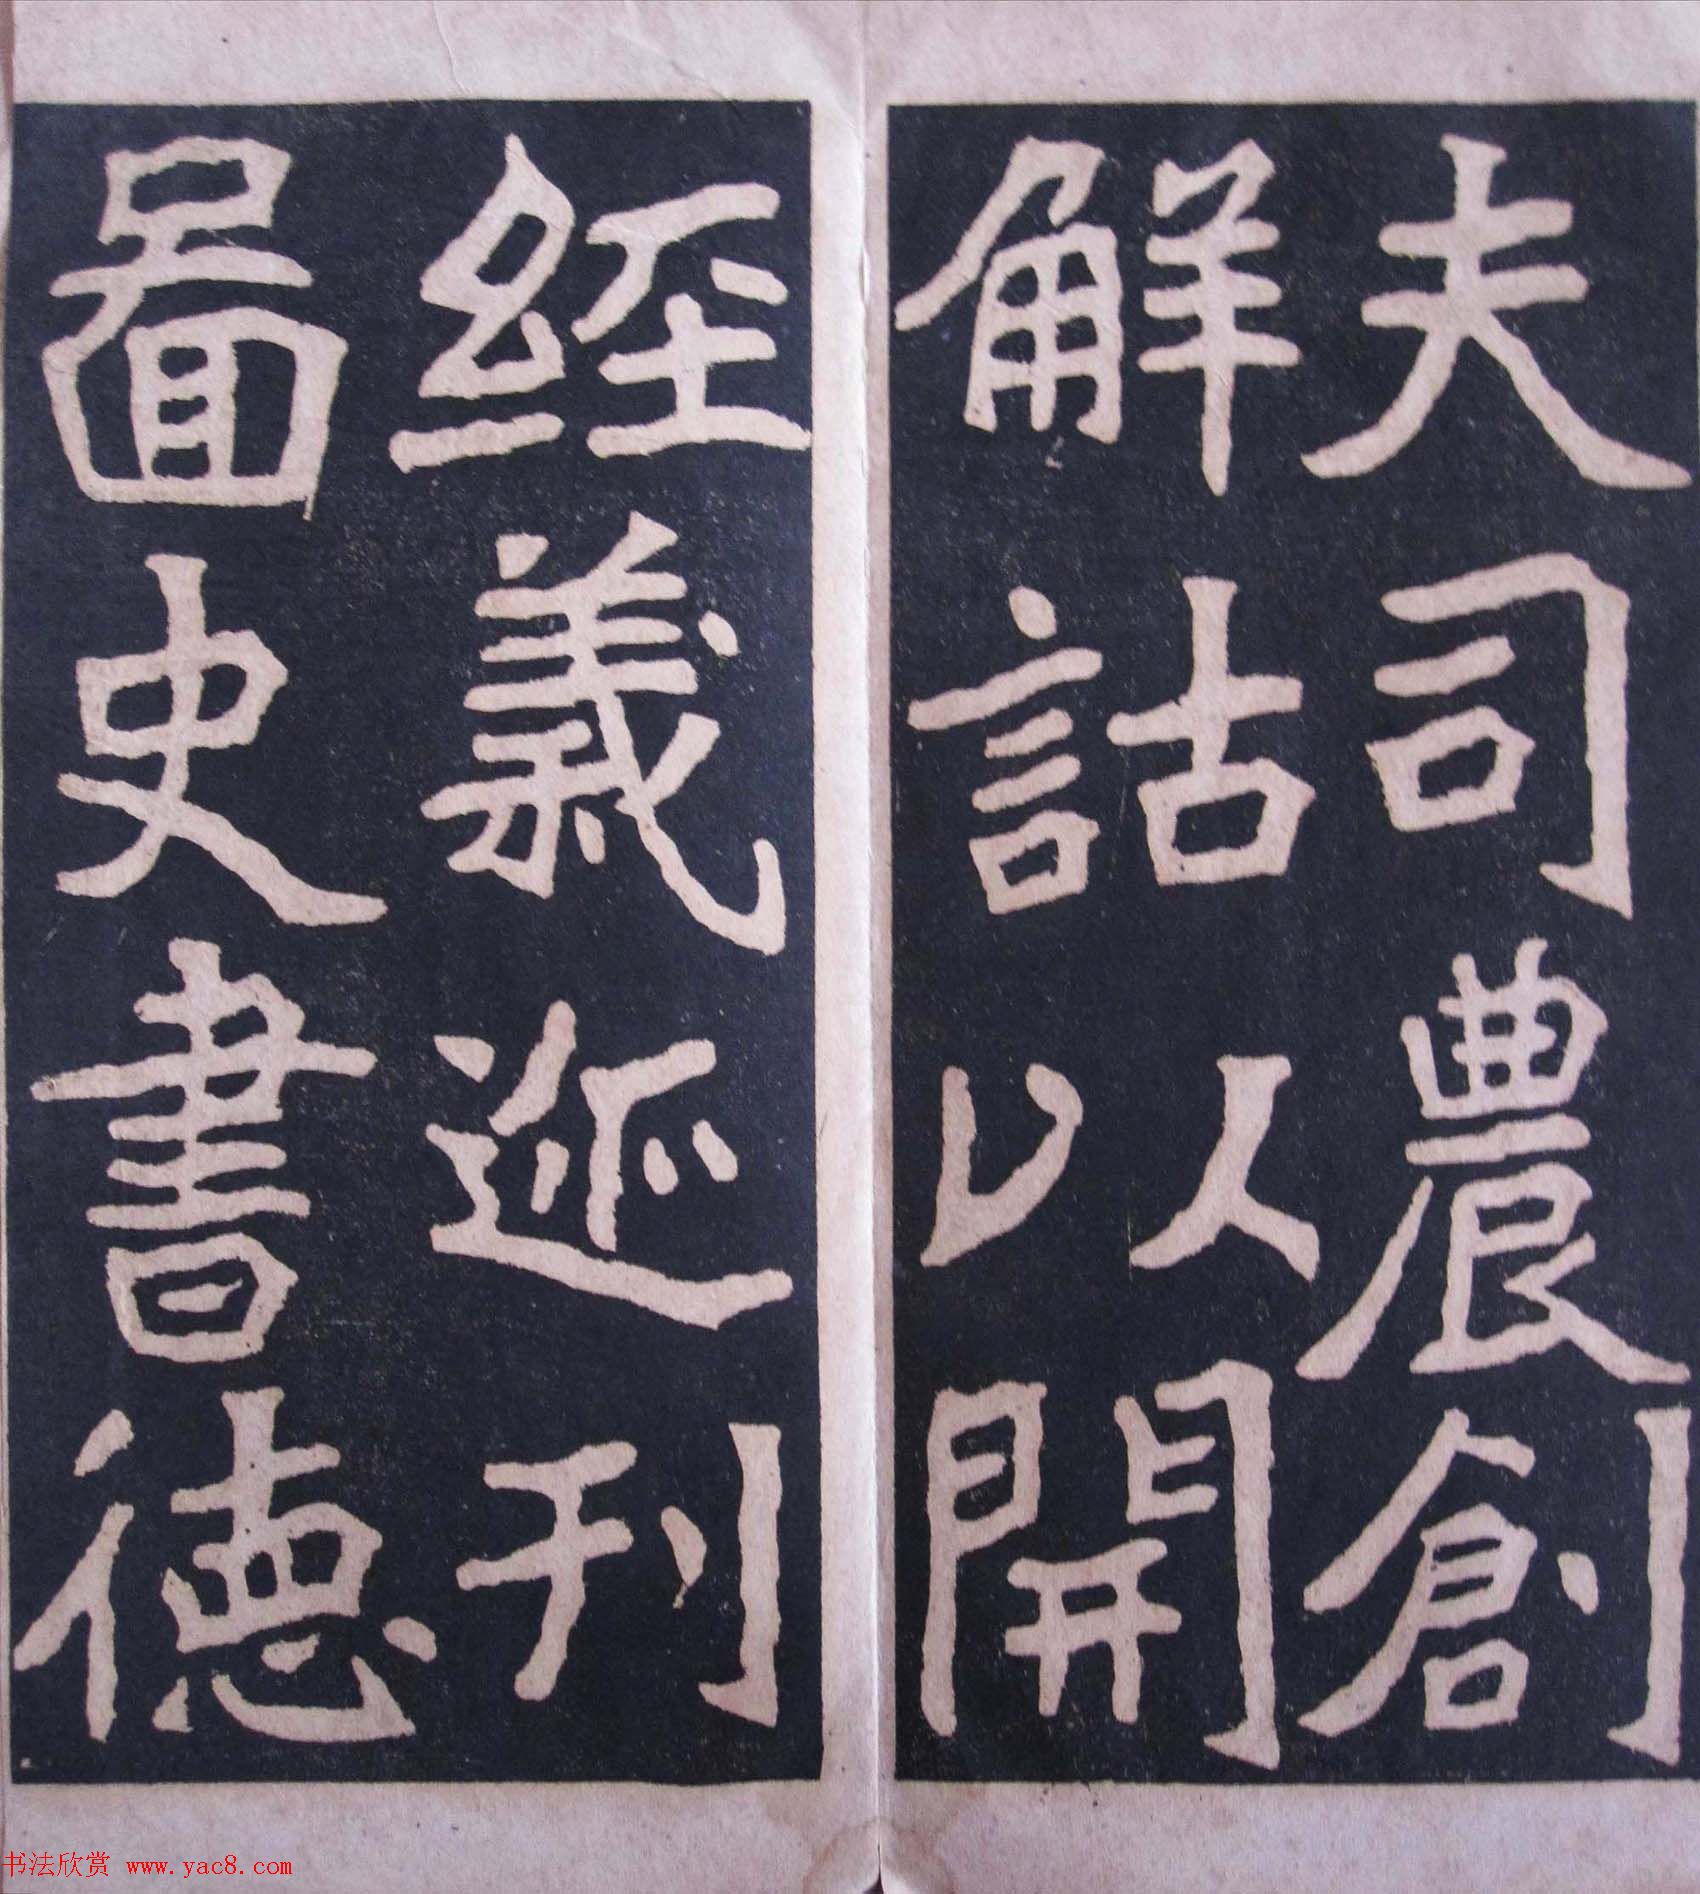 夫司農創
解詁以開
經義逊刊
啚史書德
书法欣赏 www.yac8.com